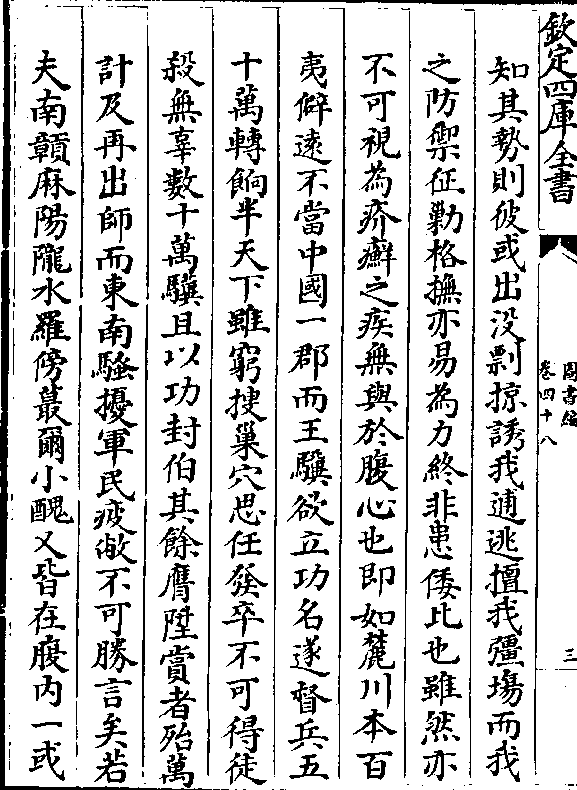 欽定四庫全書
圖書編
卷四十八
三
知其勢則彼或出沒剽掠誘我逋逃擅我彊場而我
之防禦征勦格撫亦易為力終非患倭比也雖然亦
不可視為疥癬之疾無與於腹心也即如麓川本百
夷僻逺不當中國一郡而王驥欲立功名遂督兵五
十萬轉餉半天下雖窮搜巢穴思任發卒不可得徒
殺無辜數十萬驥且以功封伯其餘膺陞賞者殆萬
計及再出師而東南騷擾軍民疲敝不可勝言矣若
夫南贛麻陽隴水羅傍蕞爾小醜又皆在腹内一或